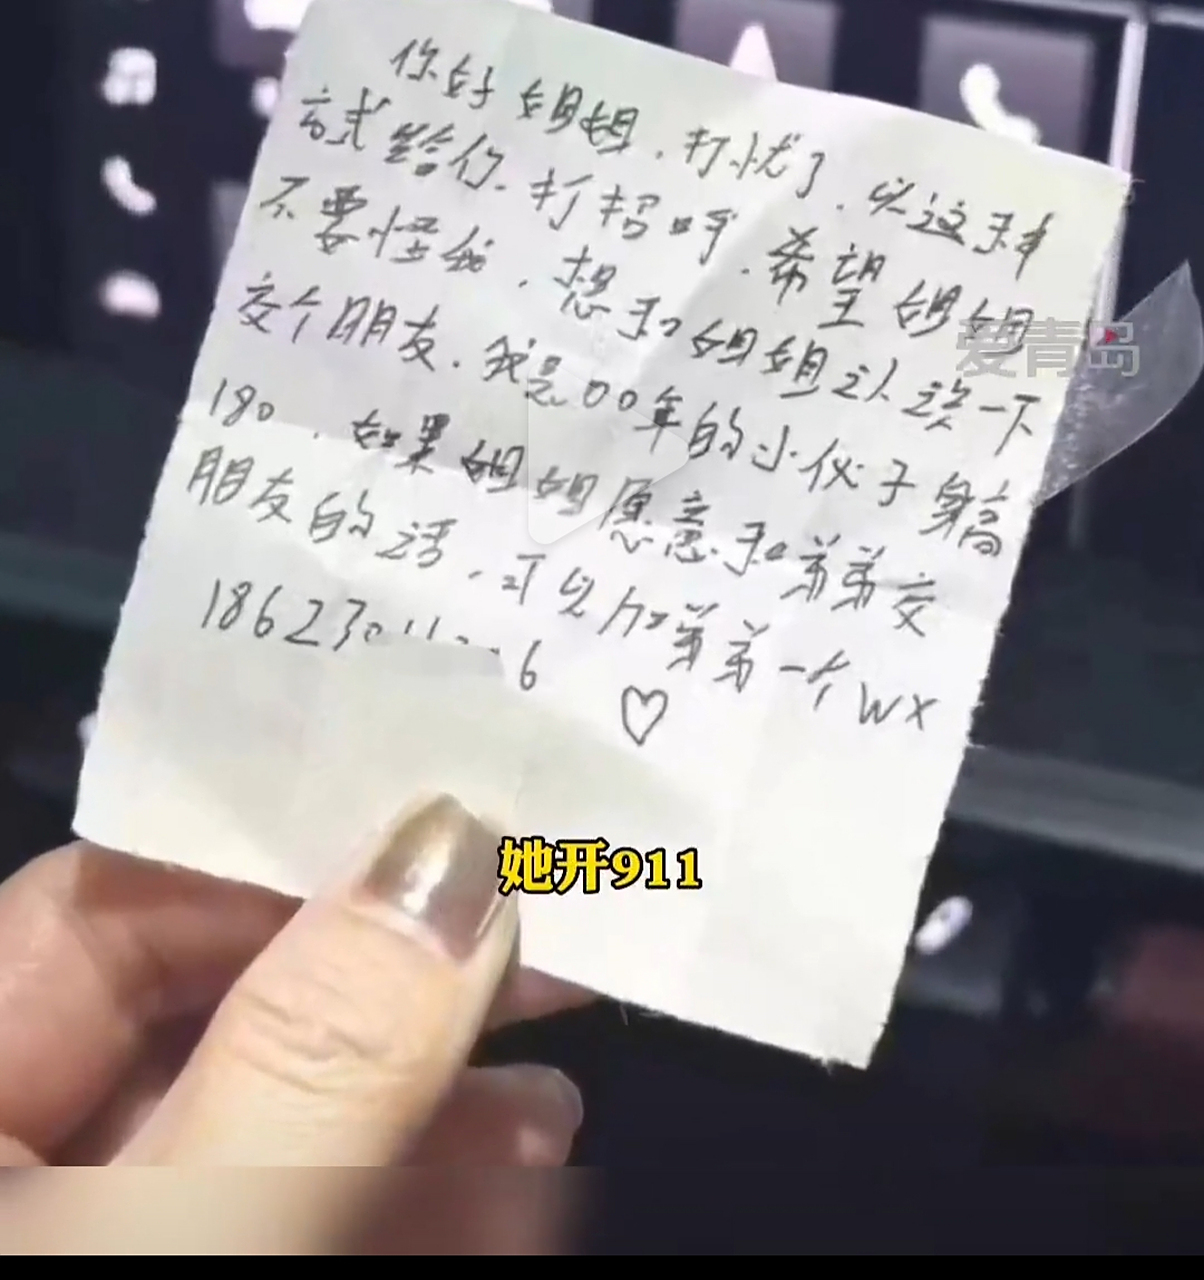 你好姐姐.打扰了.以这种
方式给你.打招呼.希望姐姐
不要怪我.想和姐姐认识一下
交个朋友.我是00年的小伙子身高
180.如果姐姐愿意和弟弟交
朋友的话.可以加弟弟一个WX
186230 6
♡
爱青岛
她开911